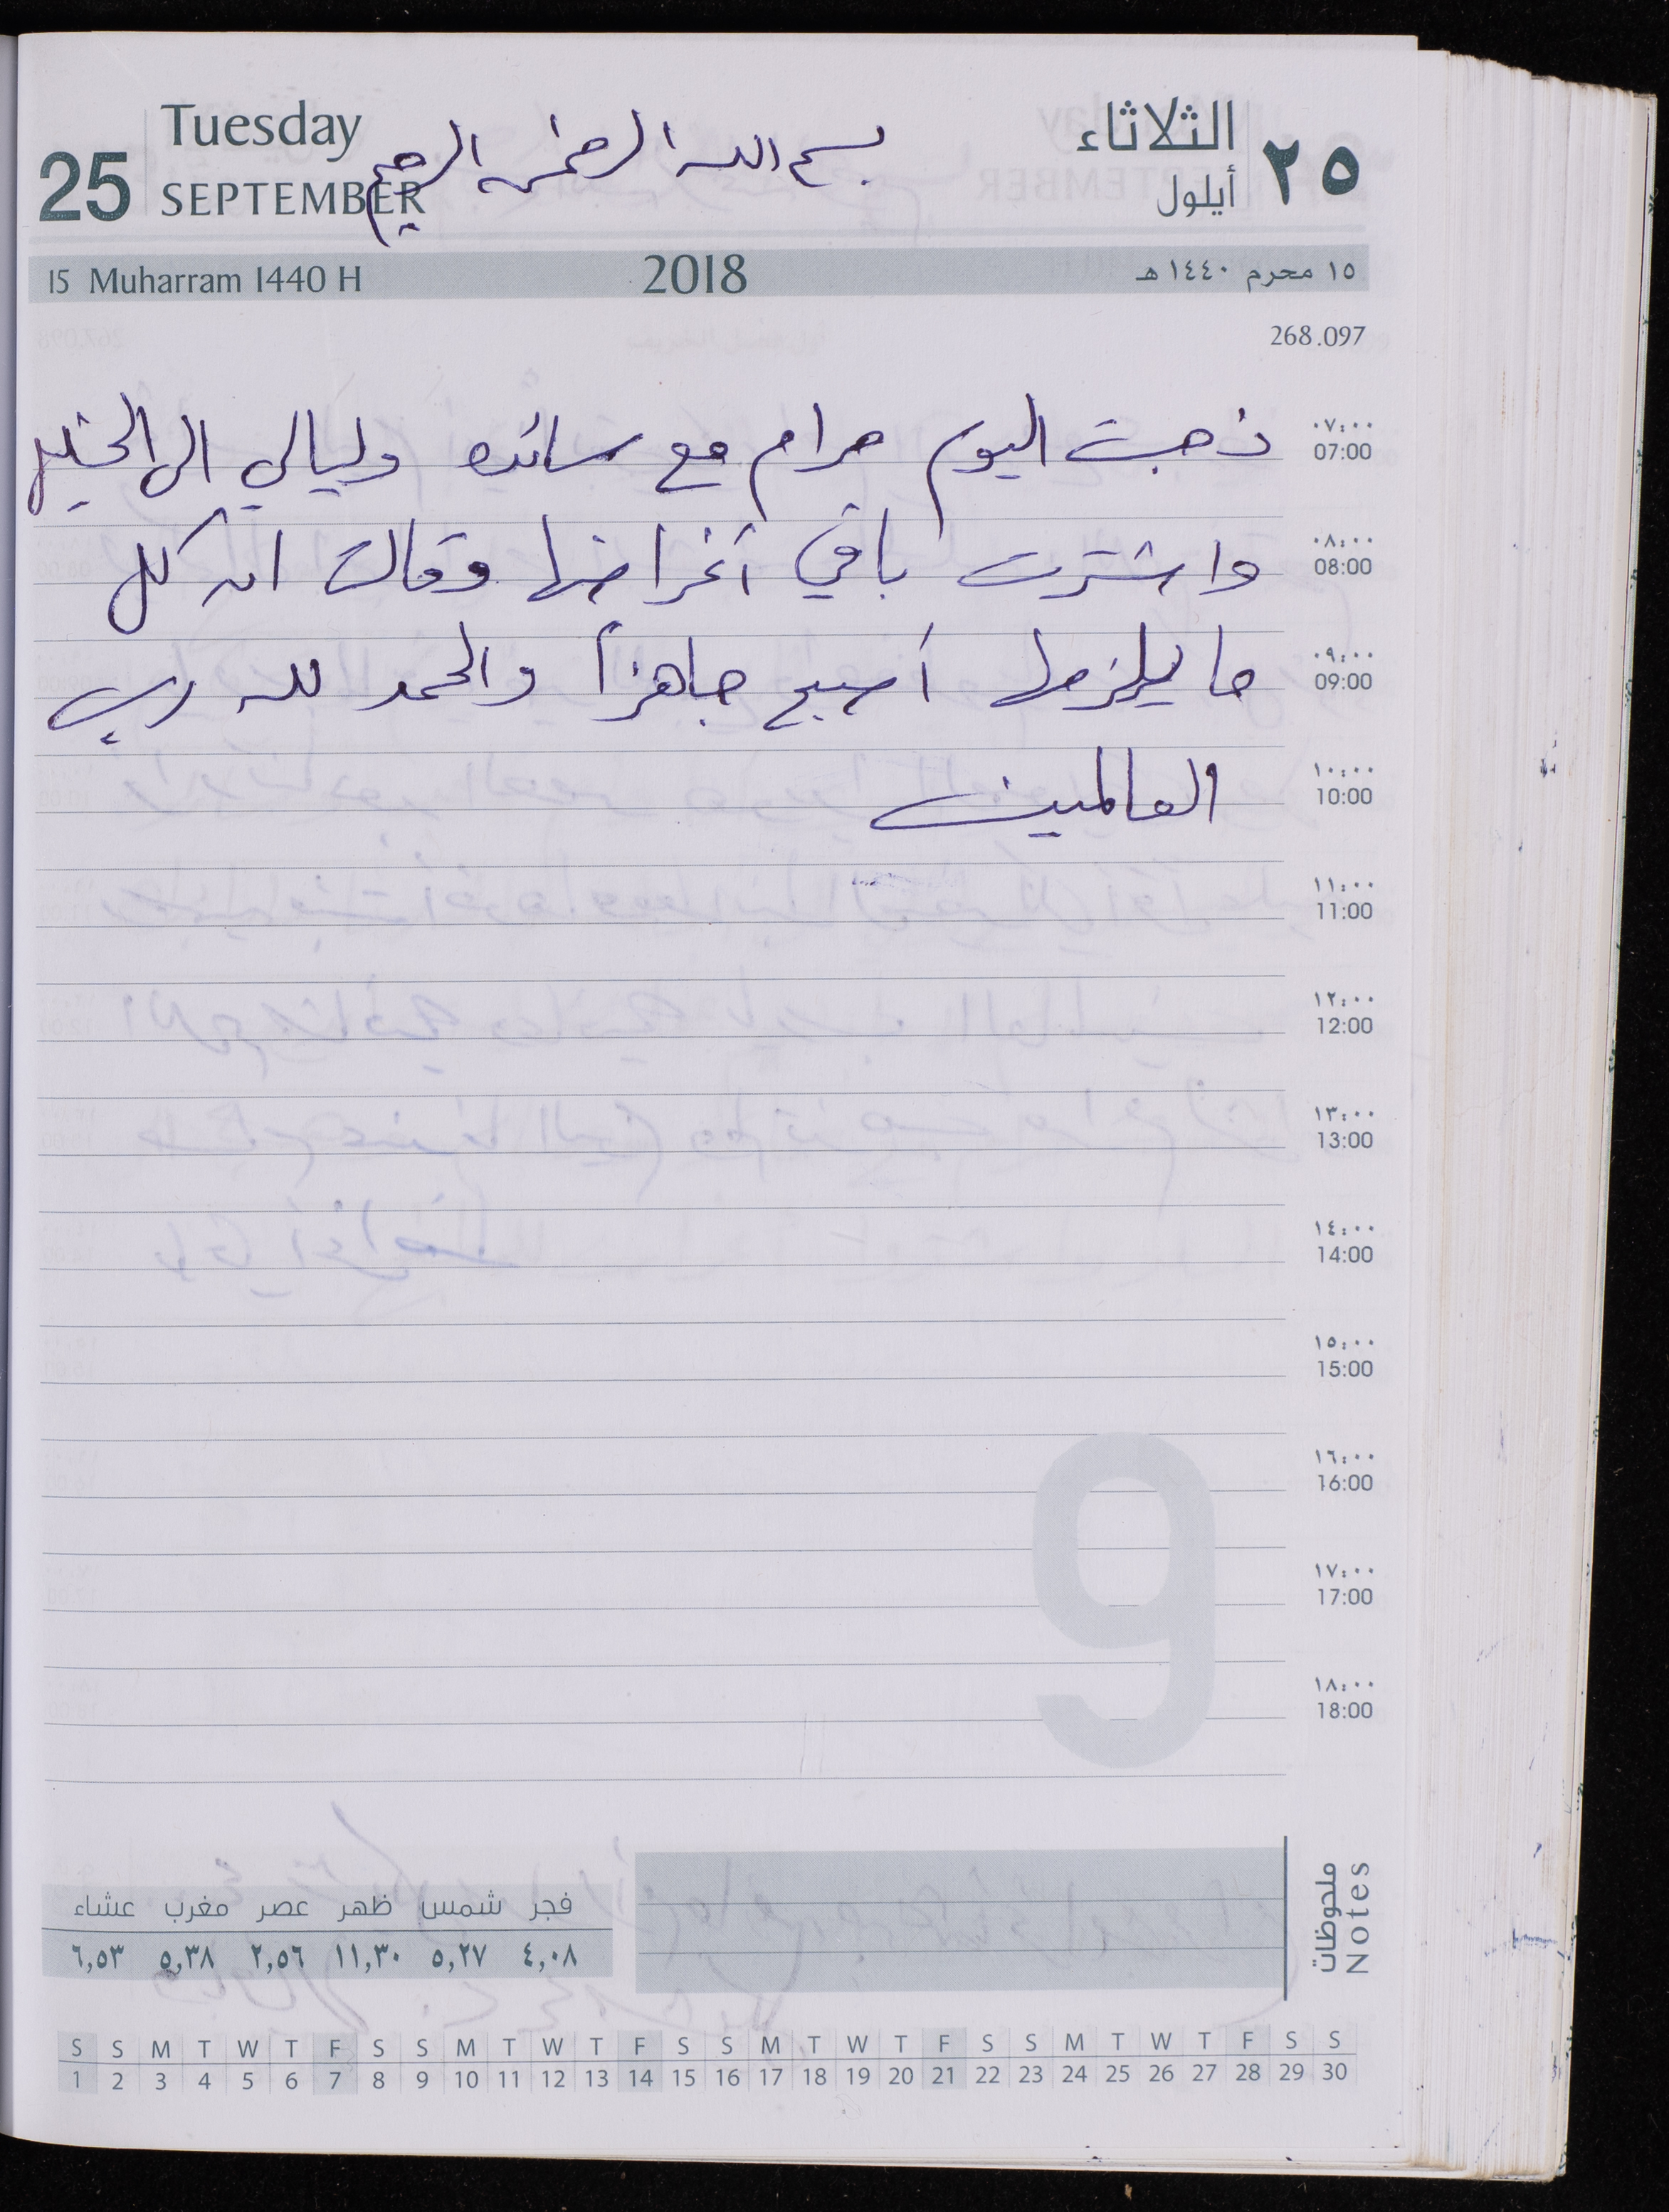 Tuesday
25 SEPTEMBER
بسم الله الرحمن الرحيم
الثلاثاء
٢٥ أيلول
15 Muharram 1440 H
2018
١٥ محرم ١٤٤٠ هـ
268.097
ذهبت اليوم مرام مع سائده وليالي الى الخليل
واشترت باقي أغراضها وقالت ان كل
ما يلزمها أصبح جاهزاً والحمد لله رب
العالمين
٠٧:٠٠
07:00
٠٨:٠٠
08:00
٠٩:٠٠
09:00
١٠:٠٠
10:00
١١:٠٠
11:00
١٢:٠٠
12:00
١٣:٠٠
13:00
١٤:٠٠
14:00
١٥:٠٠
15:00
١٦:٠٠
16:00
١٧:٠٠
17:00
١٨:٠٠
18:00
9
ملحوظات
Notes
فجر شمس ظهر عصر مغرب عشاء
٤,٠٨ ٥,٢٧ ١١,٣٠ ٢,٥٦ ٥,٣٨ ٦,٥٣
S S M T W T F S S M T W T F S S M T W T F S S M T W T F S S
1 2 3 4 5 6 7 8 9 10 11 12 13 14 15 16 17 18 19 20 21 22 23 24 25 26 27 28 29 30